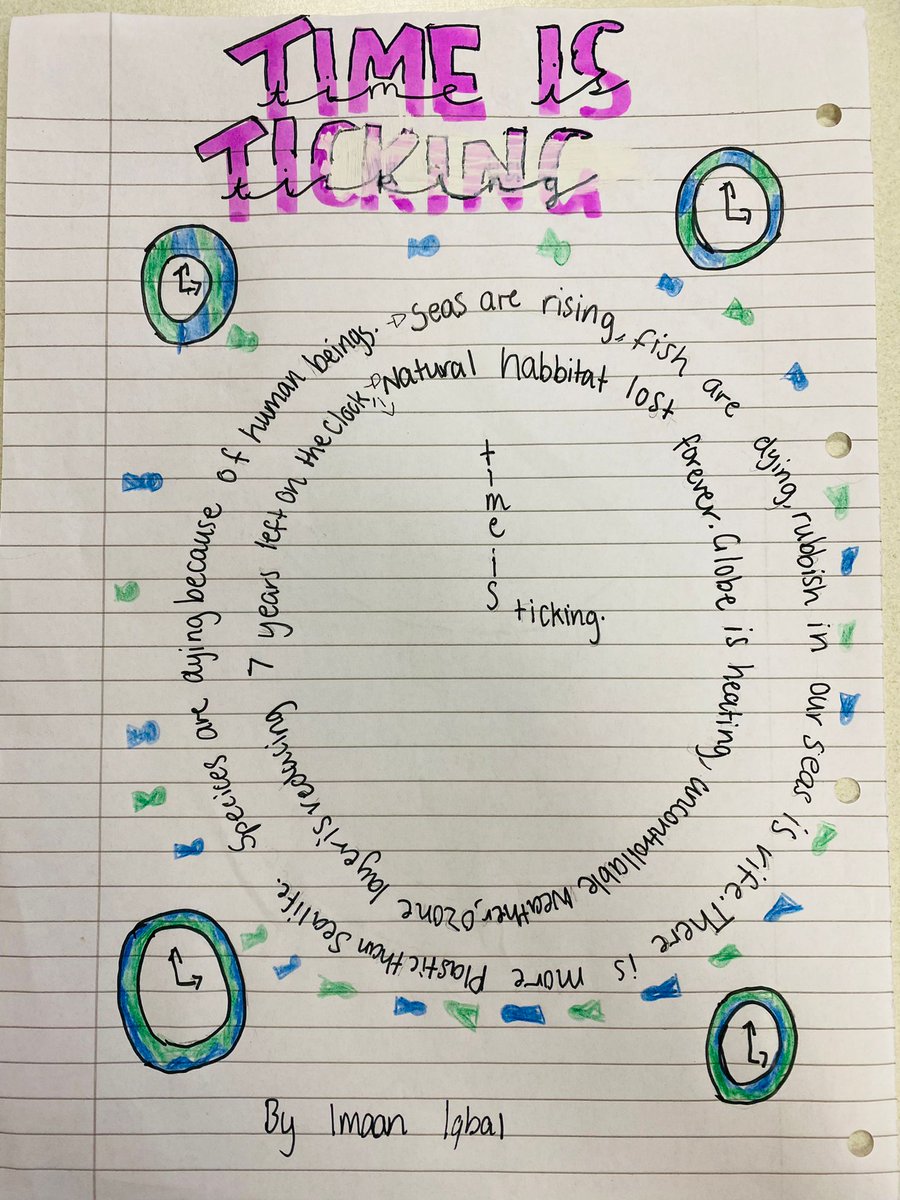 TIME IS
time is
TICKING
ticking
Seas are rising, fish are dying, rubbish in our seas is rife. There is more Plastic than Sea life. Species are dying because of human beings.
Natural habbitat lost forever. Globe is heating, uncontrollable weather, ozone layer is reducing 7 years left on the clock
time is
ticking.
By Imaan Iqbal